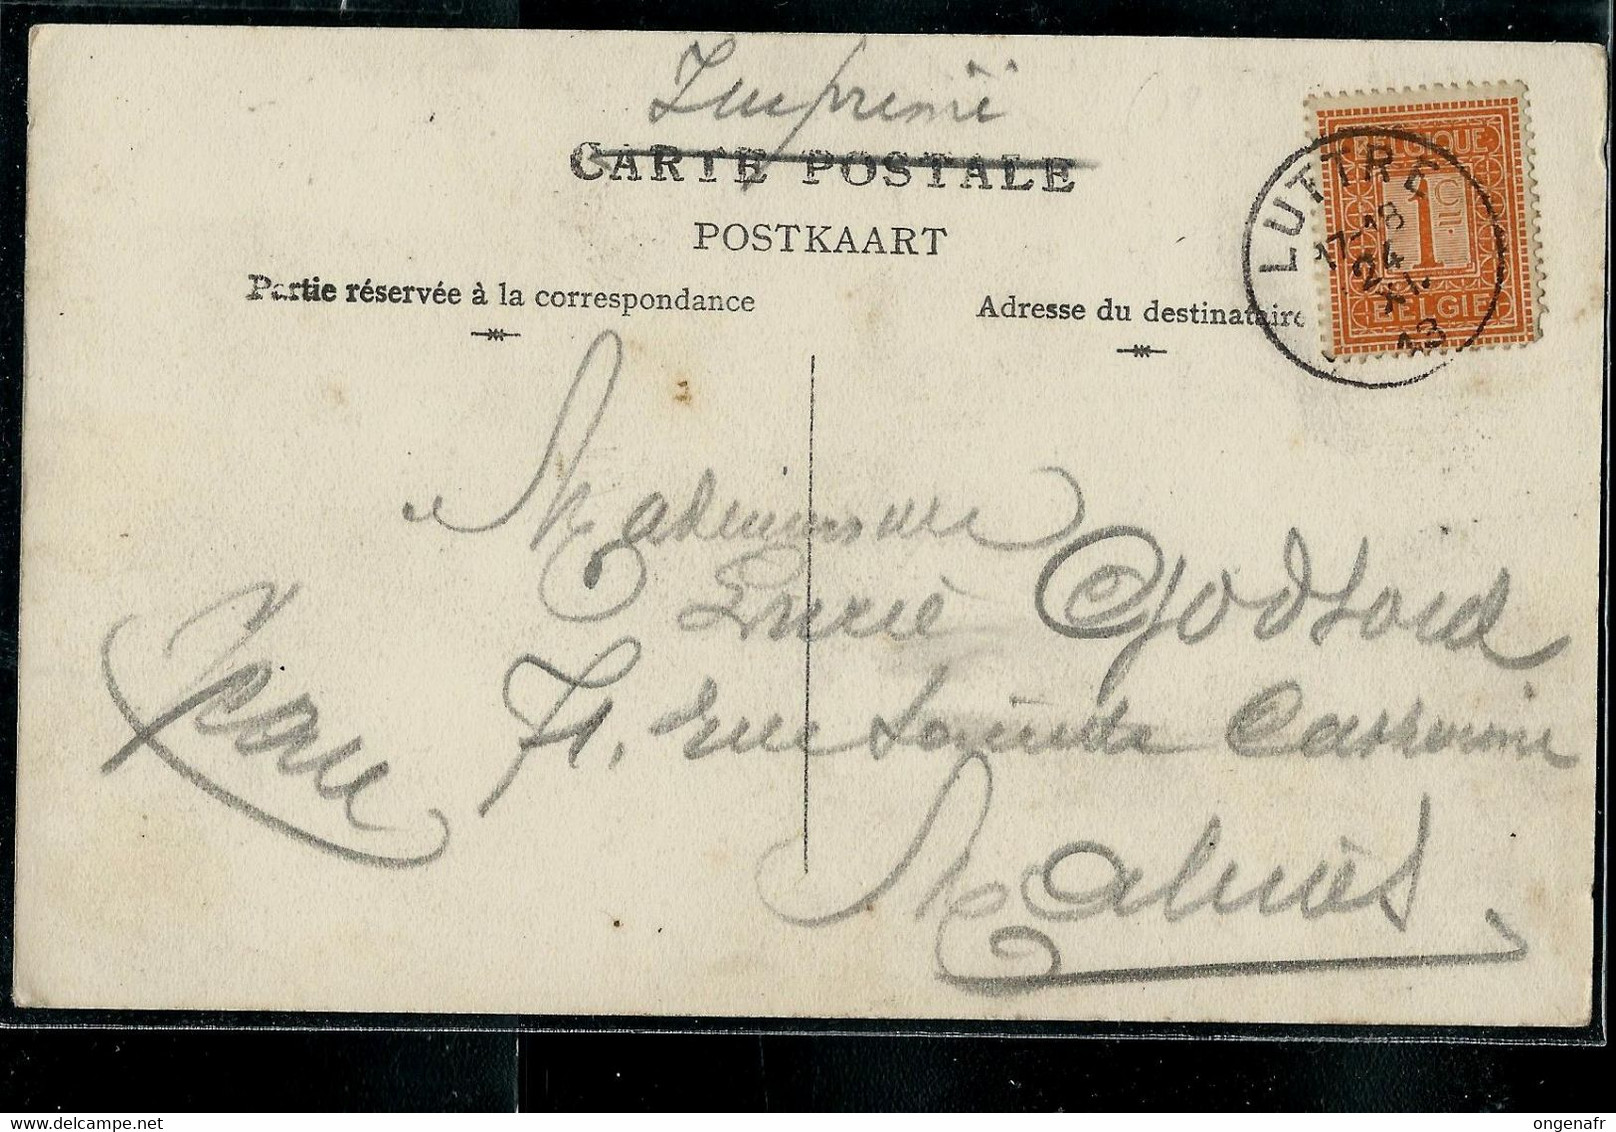 Imprimé
CARTE POSTALE
POSTKAART
Partie réservée à la correspondance
Adresse du destinataire
BELGIQUE
1 C
BELGIE
LUTTRE
17-18
24
XII
13
Mademoiselle
Godfroid
71, rue
Malines
Jean
ongenafr